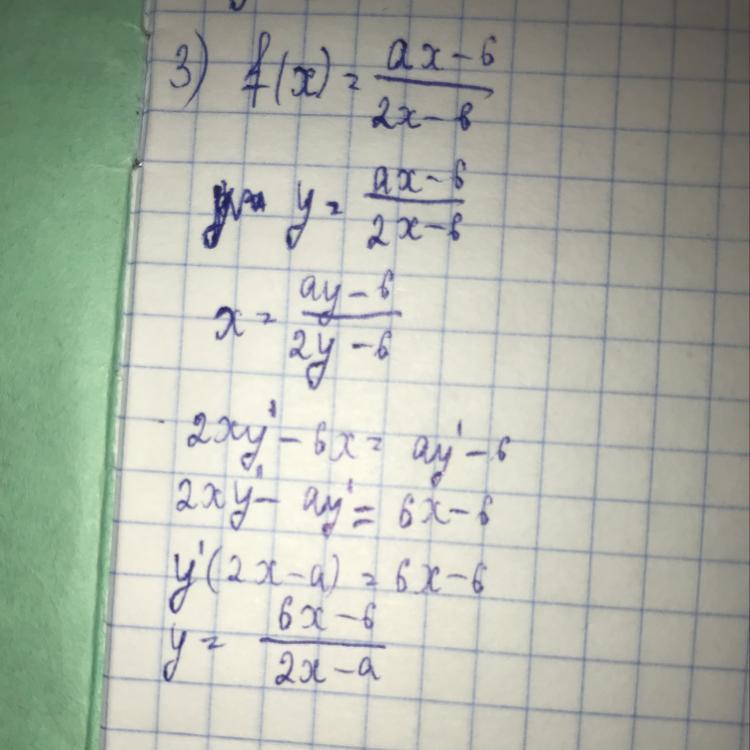 3) f(x) = ax-6 / 2x-6
y = ax-6 / 2x-6
x = ay-6 / 2y-6
2xy' - 6x = ay' - 6
2xy' - ay' = 6x-6
y'(2x-a) = 6x-6
y = 6x-6 / 2x-a